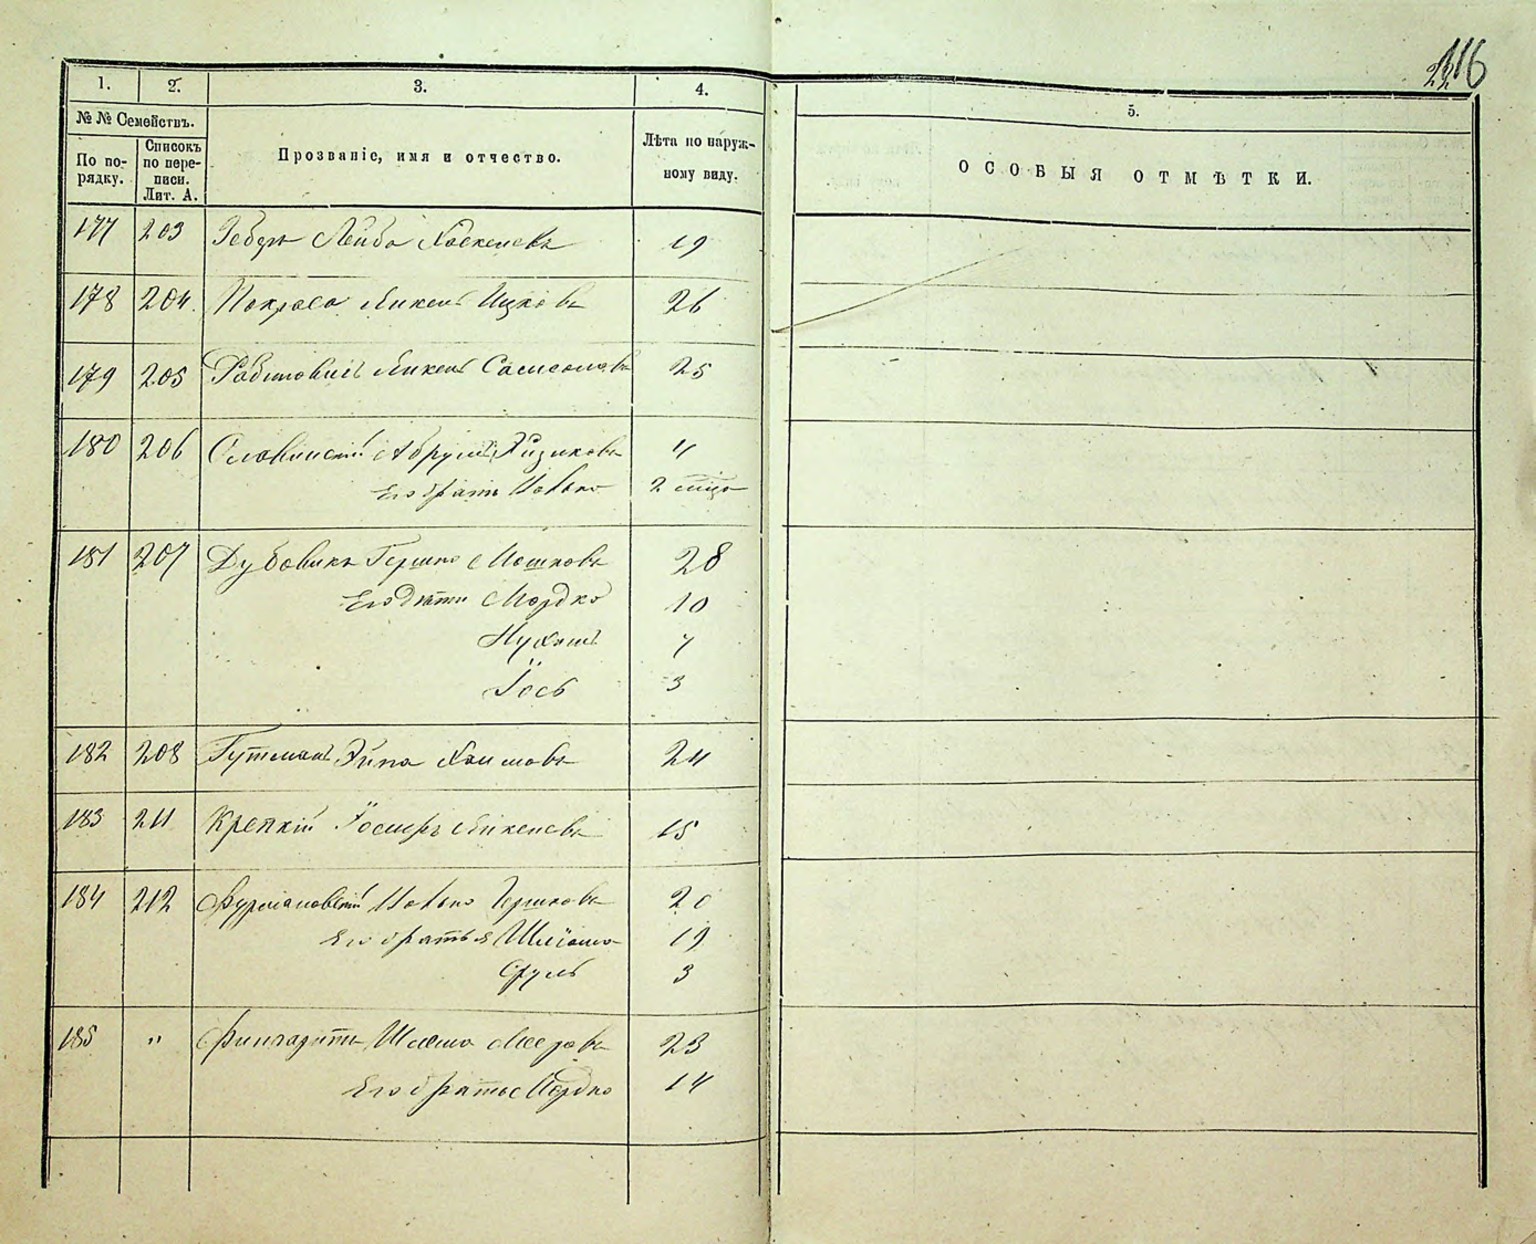 116
1. 2. 3. 4. 5.
№ № Семействъ.
По порядку.
Списокъ по переписи. Лит. А.
Прозваніе, имя и отчество.
Лѣта по наружному виду.
ОСОБЫЯ ОТМѢТКИ.
177 203 Лейба 19
178 204 Покраса Янкель Ицковъ 26
179 205 Рабиновичъ Янкель Самсоновъ 25
180 206 Славинскій Абрумъ Айзиковъ 4
Его братъ Иолько 2
181 207 Дубовикъ Гершко Мошковъ 28
Его дѣти Мордко 10
Нухимъ 7
Іось 3
182 208 Гутманъ Хаимовъ 24
183 211 Крепкій Іосифъ Янкелевъ 15
184 212 Фурмановскій Иолько Гершковъ 20
Его братья Шліома 19
Сруль 3
185 " Шлема Мееровъ 23
Его братъ Мордко 14